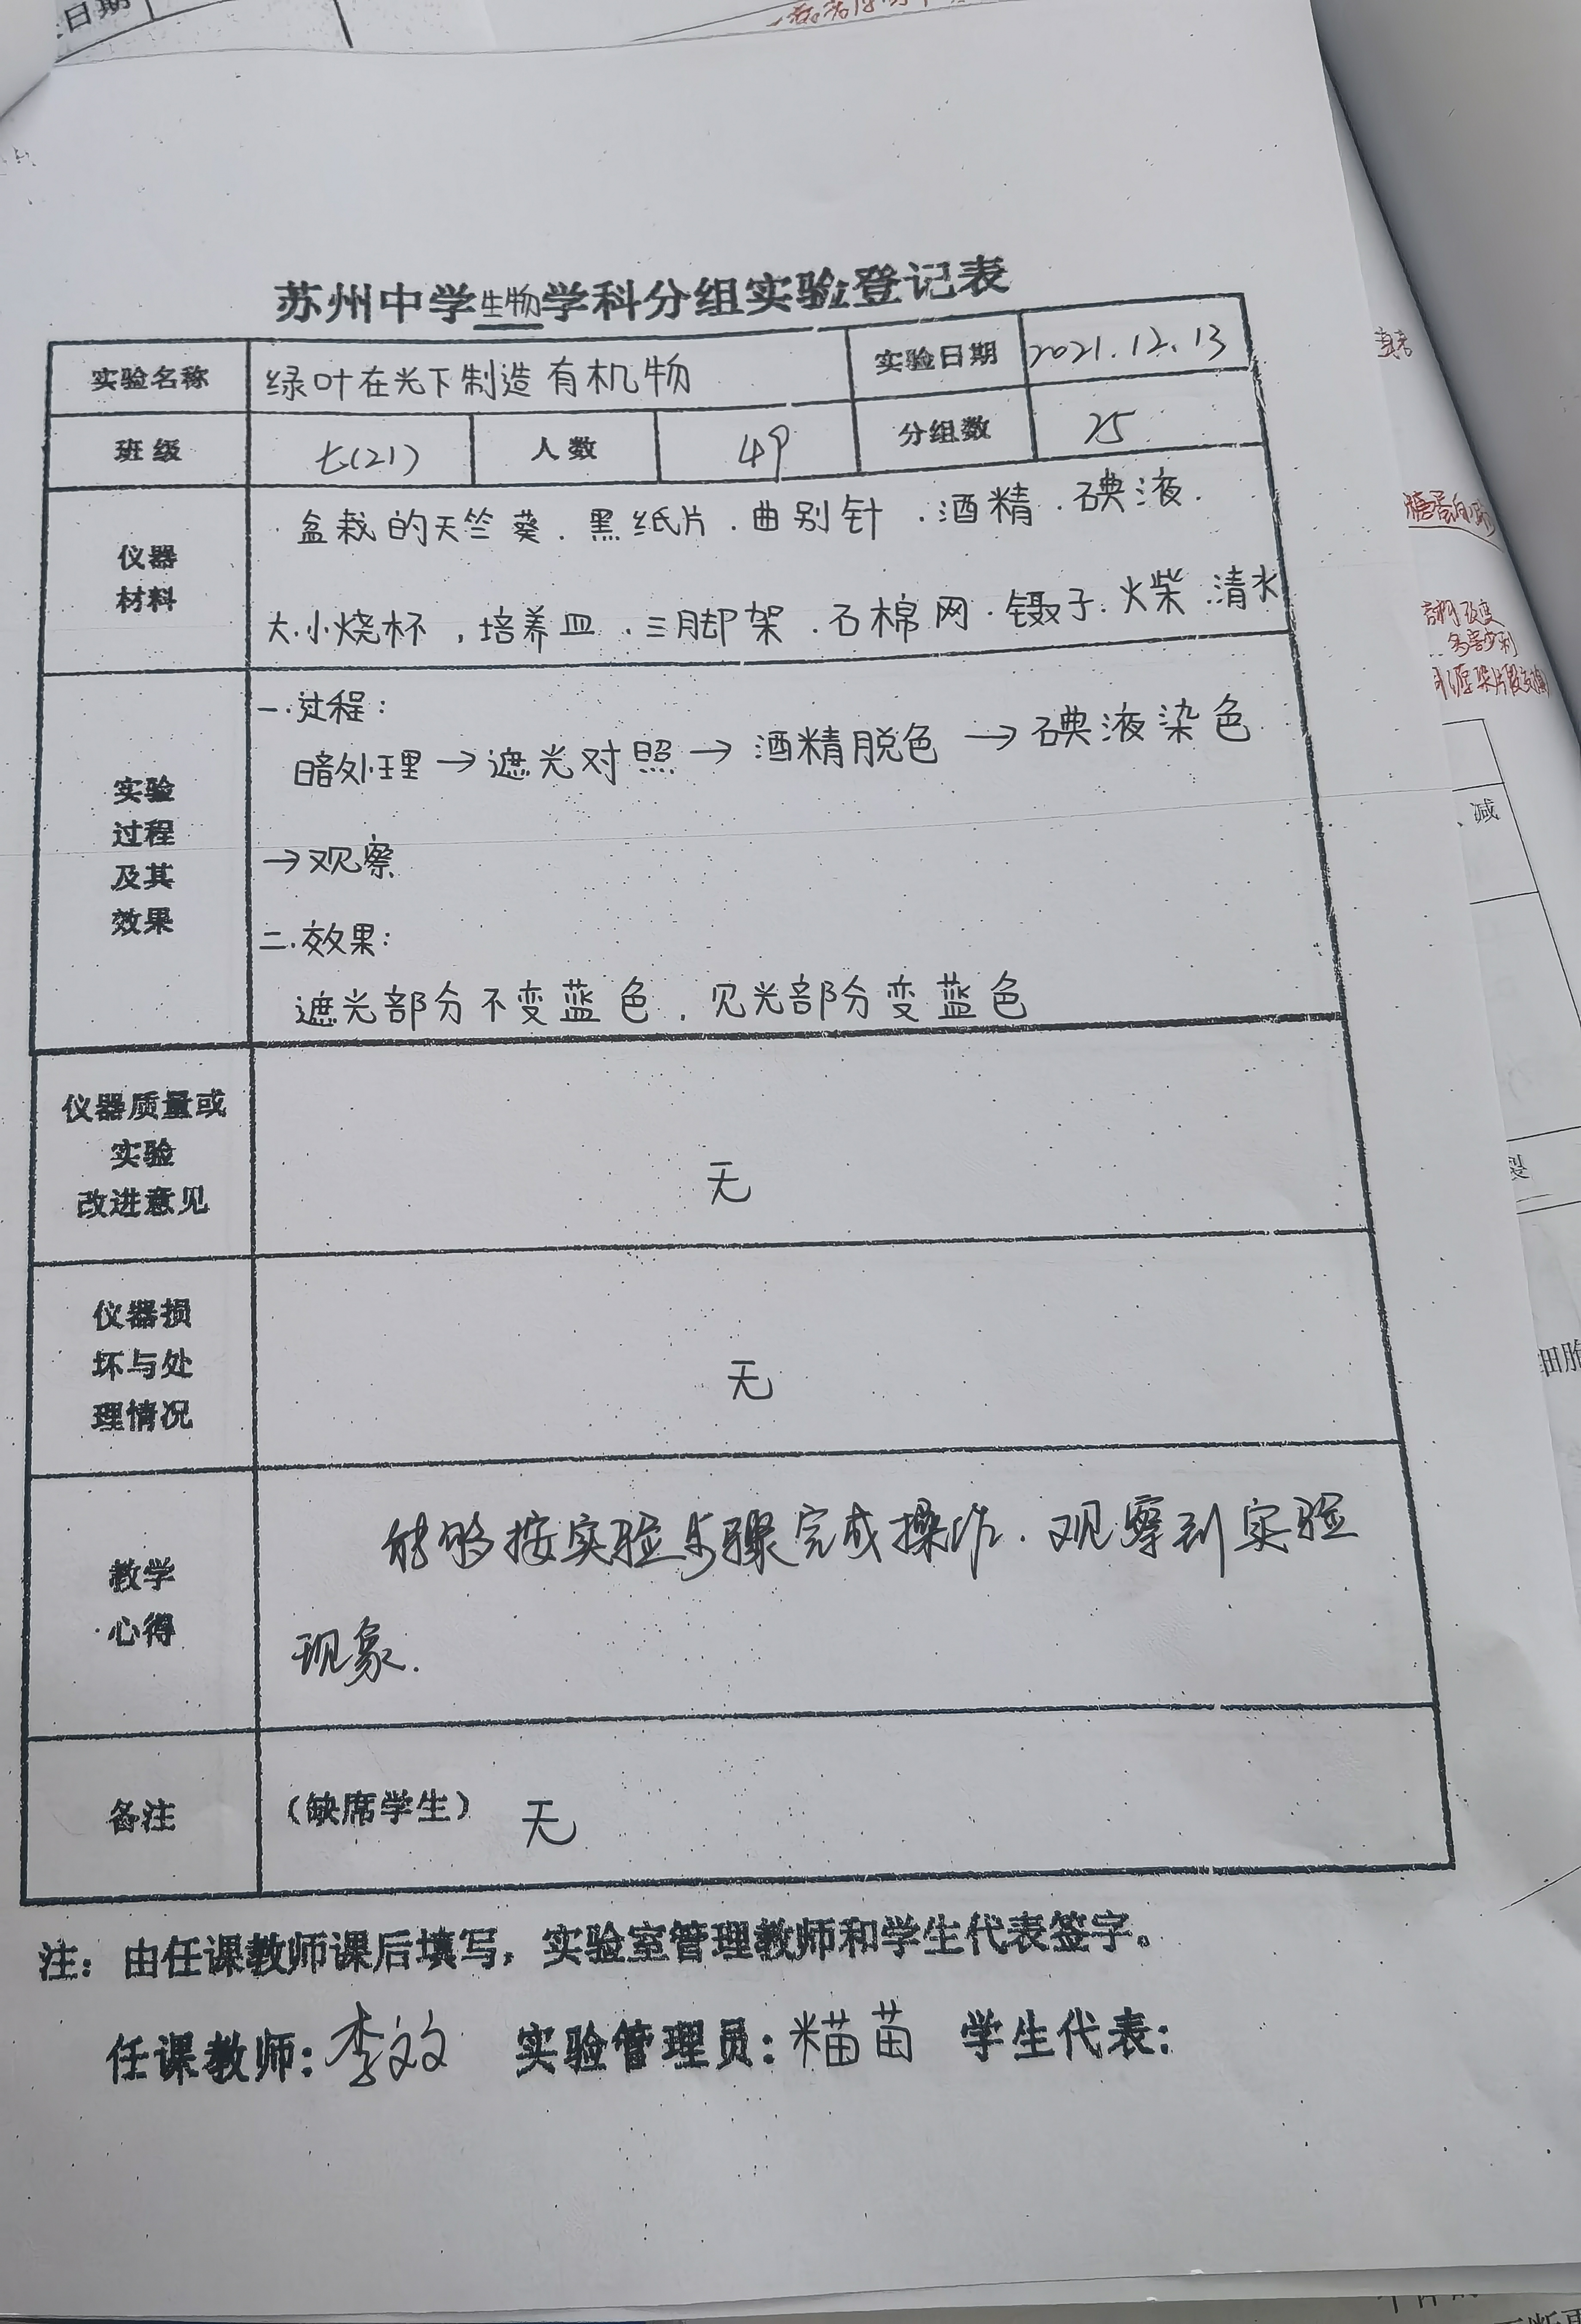 日期
苏州中学生物学科分组实验登记表
实验名称 绿叶在光下制造有机物 实验日期 2021.12.13
班级 七(21) 人数 49 分组数 25
仪器
材料
盆栽的天竺葵.黑纸片.曲别针.酒精.碘液.
大.小烧杯,培养皿.三脚架.石棉网.镊子.火柴.清水
实验
过程
及其
效果
一.过程:
暗处理→遮光对照→酒精脱色→碘液染色
→观察
二.效果:
遮光部分不变蓝色,见光部分变蓝色
仪器质量或
实验
改进意见
无
仪器损
坏与处
理情况
无
教学
心得
能够按实验步骤完成操作.观察到实验
现象.
备注 (缺席学生) 无
注：由任课教师课后填写，实验室管理教师和学生代表签字。
任课教师: 李 实验管理员: 苗 学生代表:
、减
裂
细胞